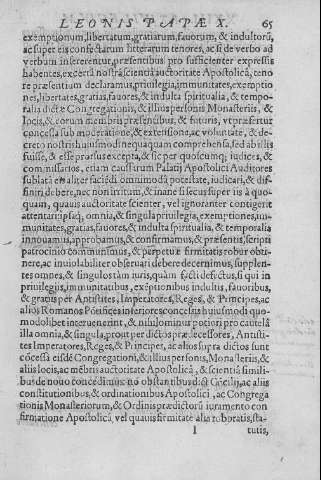 LEONIS PAPÆ X. 65
exemptionum, libertatum, gratiarum, fauorum, & indultorũ,
ac super eis confectarum litterarum tenores, ac si de verbo ad
verbum insererentur, præsentibus pro sufficienter expressis
habentes, ex certa nostra scientia auctoritate Apostolica, teno
re præsentium declaramus, priuilegia, immunitates, exemptio
nes, libertates, gratias, fauores, & indulta spiritualia, & tempo
ralia dictæ Congregationi, & illius personis Monasteriis, &
locis, & eorum membris præsentibus, & futuris, vt præfertur
concessa sub moderatione, & extensione, ac voluntate, & de-
creto nostris huiusmodi nequaquam comprehensa, sed ab illis
fuisse, & esse prorsus excepta, & sic per quoscumq; iudices, &
commissarios, etiam causarum Palatij Apostolici Auditores
sublata eis aliter faciẽdi omnimoda potestate, iudicari, & dif-
finiri debere, nec non irritum, & inane si secus super iis à quo-
quam, quauis auctoritate scienter, vel ignoranter contigerit
attentari: ipsaq́; omnia, & singula priuilegia, exemptiones, im-
munitates, gratias, fauores, & indulta spiritualia, & temporalia
innouamus, approbamus, & confirmamus, & præsentis, scripti
patrocinio communimus, & perpetuæ firmitatis robur obti-
nere, ac inuiolabiliter obseruari debere decernimus, supplen-
tes omnes, & singulos tàm iuris, quàm facti defectus, si qui in
priuilegiis, immunitatibus, exẽptionibus indultis, fauoribus,
& gratiis per Antistites, Imperatores, Reges, & Principes, ac
alios Romanos Põtifices inferiores concessis huiusmodi quo-
modolibet interuenerint, & nihilominus potiori pro cautela
illa omnia, & singula, prout per dictos prædecessores, Antisti-
tes Imperatores, Reges, & Principes, ac alios supra dictos sunt
cõcessa eisdẽ Congregationi, & illius personis, Monasteriis, &
aliis locis, ac mẽbris auctoritate Apostolica, & scientia simili-
bus de nouo concedimus: nõ obstantibus dicti Cõcilij, ac aliis
constitutionibus, & ordinationibus Apostolici, ac Congrega
tionis Monasteriorum, & Ordinis prædictorũ iuramento con
firmatione Apostolica, vel quauis firmitate alia roboratis, sta-
I tutis,